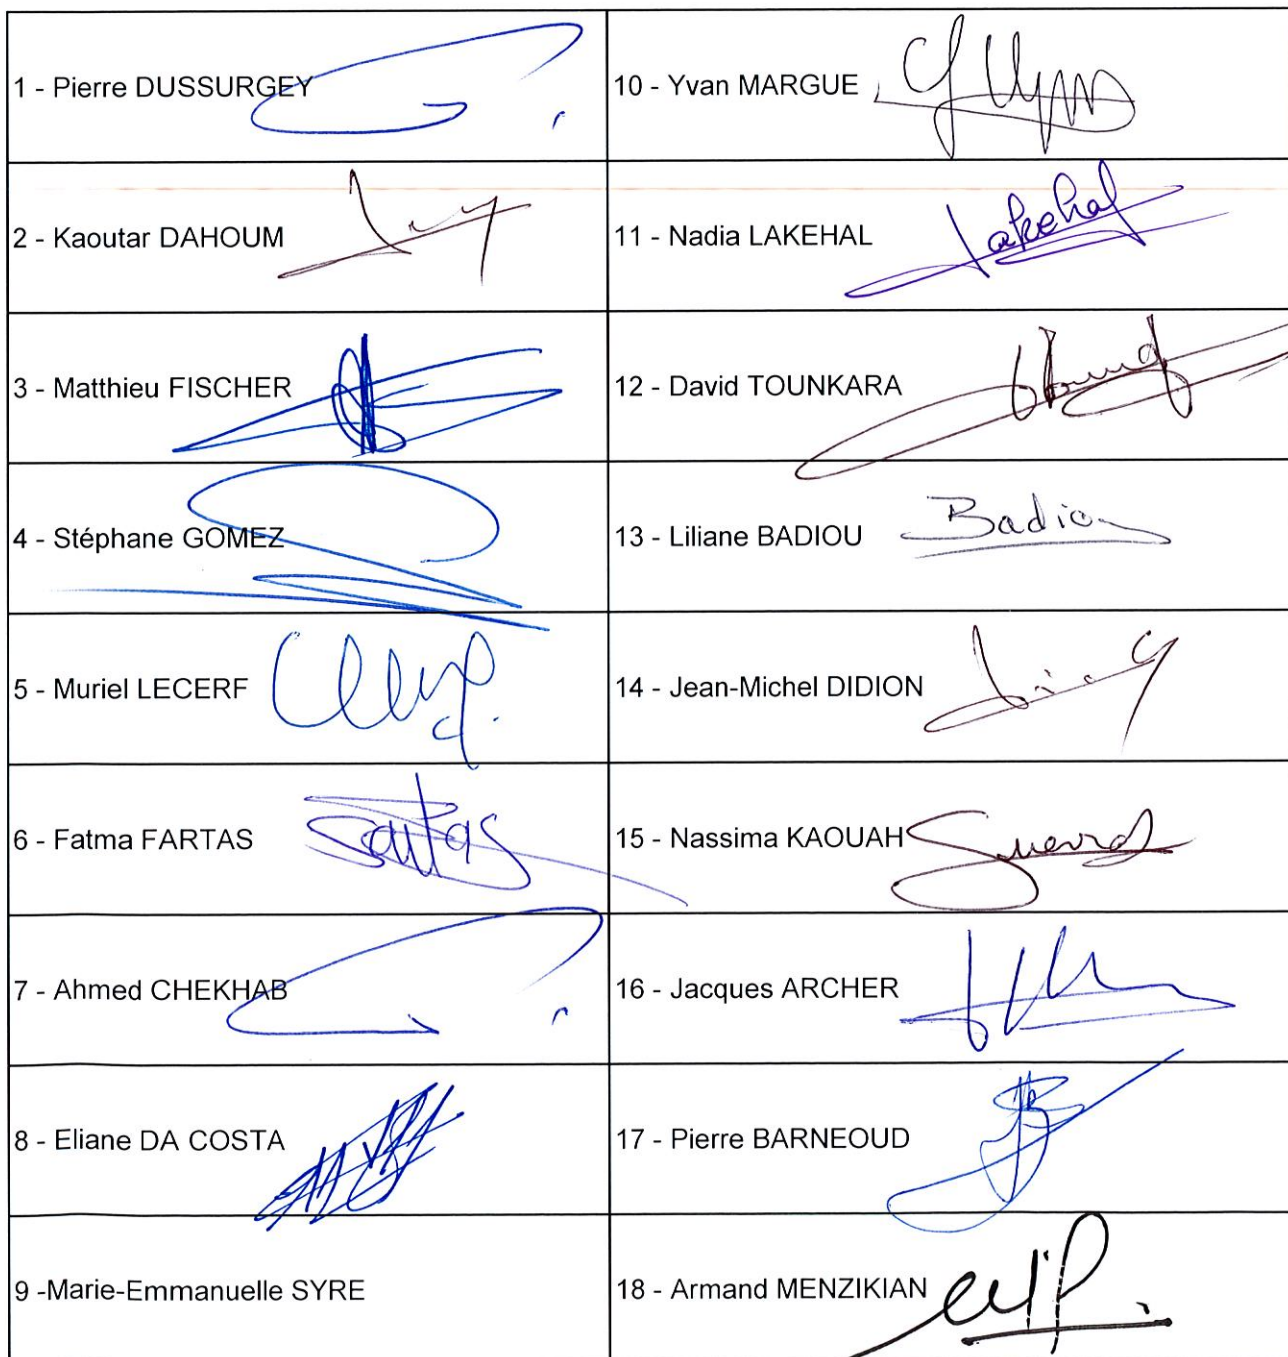 1 - Pierre DUSSURGEY
10 - Yvan MARGUE
2 - Kaoutar DAHOUM
11 - Nadia LAKEHAL
Lakehal
3 - Matthieu FISCHER
12 - David TOUNKARA
4 - Stéphane GOMEZ
13 - Liliane BADIOU
Badiou
5 - Muriel LECERF
14 - Jean-Michel DIDION
6 - Fatma FARTAS
Fartas
15 - Nassima KAOUAH
7 - Ahmed CHEKHAB
16 - Jacques ARCHER
8 - Eliane DA COSTA
17 - Pierre BARNEOUD
9 -Marie-Emmanuelle SYRE
18 - Armand MENZIKIAN